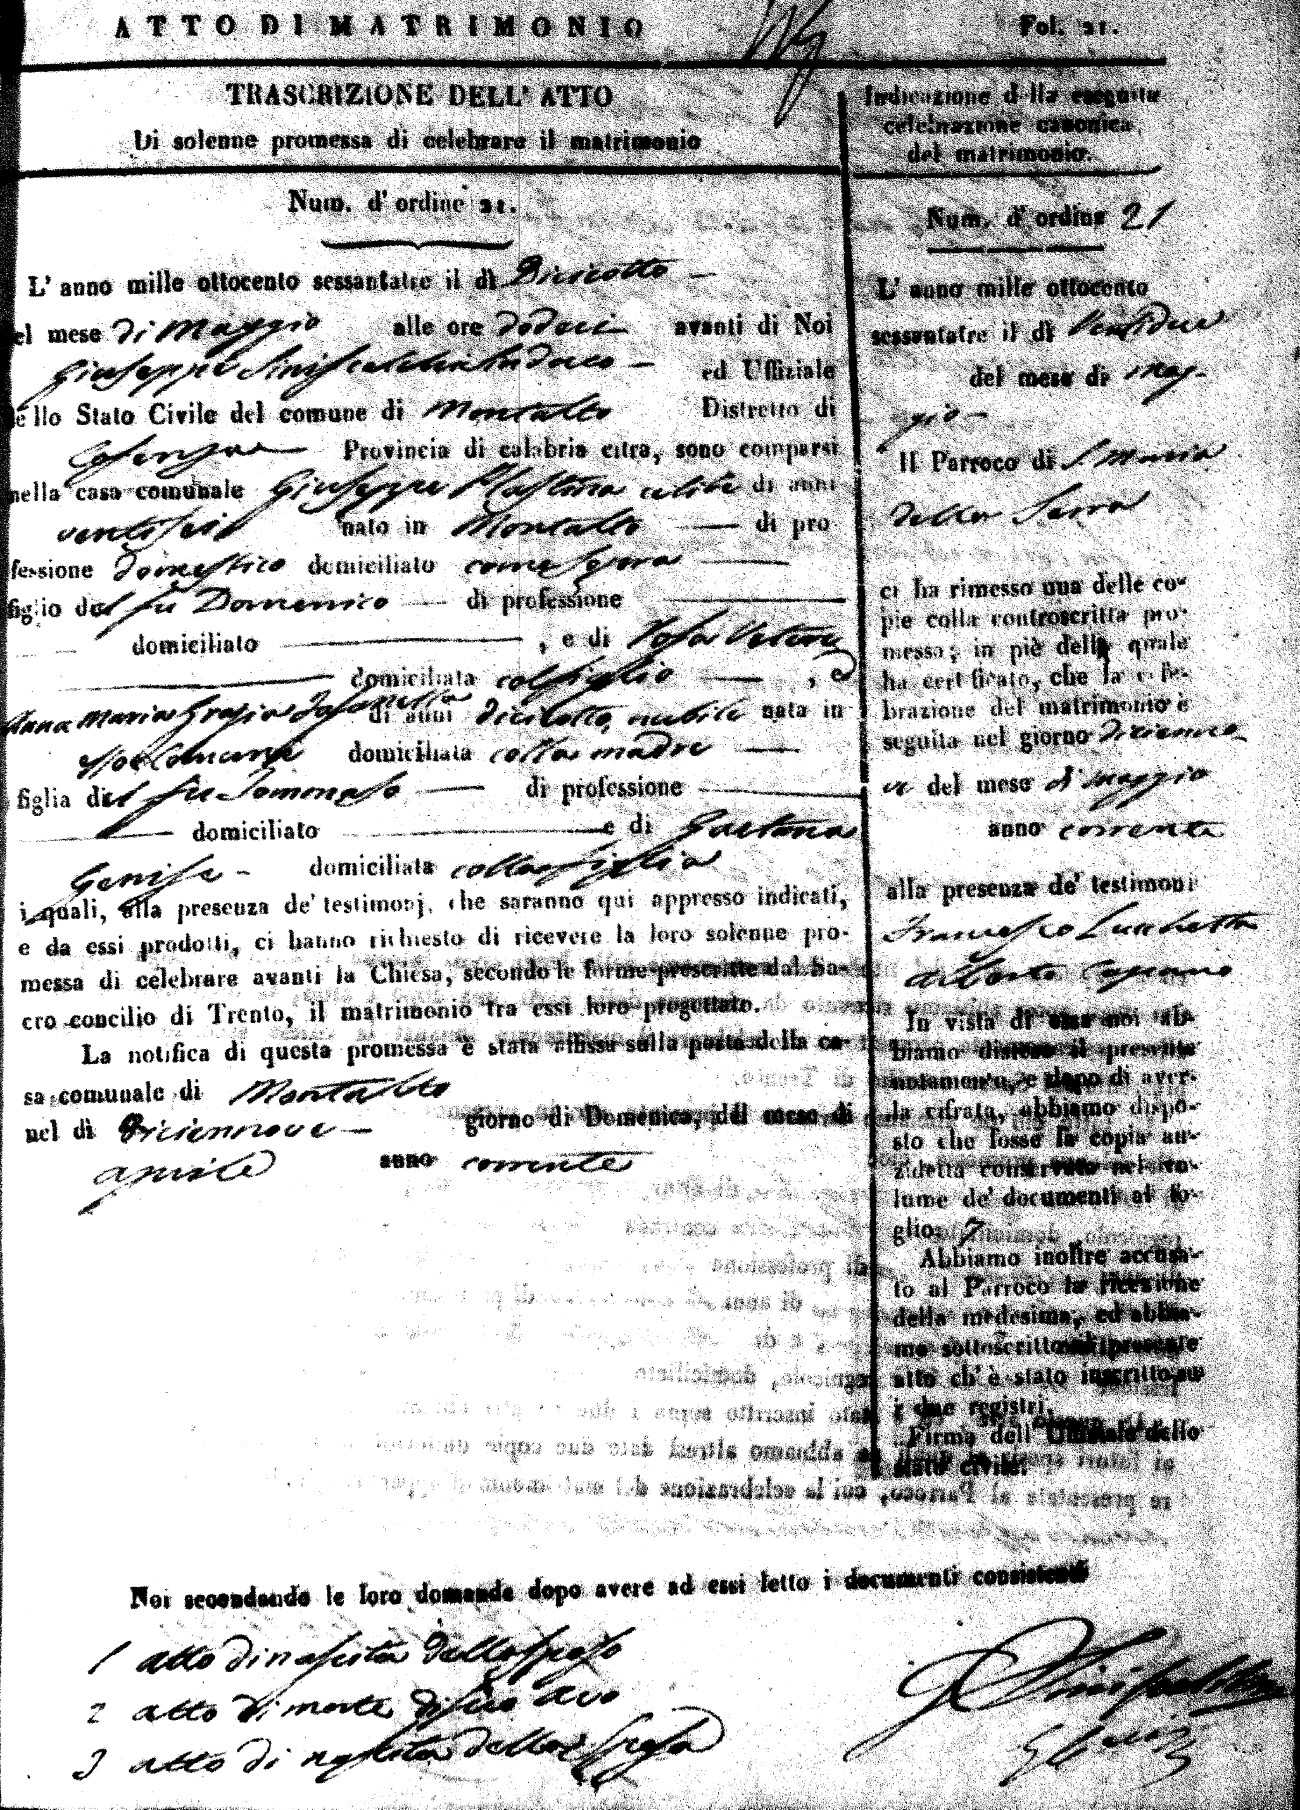 ATTO DI MATRIMONIO
Fol. 21.
TRASCRIZIONE DELL' ATTO
Di solenne promessa di celebrare il matrimonio
Num. d' ordine 21.
L' anno mille ottocento sessantatre il dì Diciotto
el mese di Maggio alle ore dodeci avanti di Noi
Giuseppe Siniscalchi Sindaco ed Uffiziale
llo Stato Civile del comune di Montalto Distretto di
Cosenza Provincia di calabria citra, sono comparsi
nella casa comunale Giuseppe Plastina celibe di anni
ventisei nato in Montalto di pro
fessione domestico domiciliato come sopra
figlio del fu Domenico di professione
domiciliato , e di Rosa
domiciliata col figlio , ed
Anna Maria Grazia di anni diciotto, nubile nata in
domiciliata colla madre
figlia del fu Tommaso di professione
domiciliato e di Gaetana
Genise domiciliata colla figlia
i quali, alla presenza de' testimonj, che saranno qui appresso indicati,
e da essi prodotti, ci hanno richiesto di ricevere la loro solenne pro-
messa di celebrare avanti la Chiesa, secondo le forme prescritte dal Sa-
cro concilio di Trento, il matrimonio tra essi loro progettato.
La notifica di questa promessa è stata affissa sulla porta della ca-
sa comunale di Montalto
nel dì Diciennove giorno di Domenica, del mese di
aprile anno corrente
Indicazione della eseguita
celebrazione canonica
del matrimonio.
Num. d' ordine 21
L' anno mille ottocento
sessantatre il dì Ventidue
del mese di Mag-
gio
Il Parroco di S. Maria
della Serra
ci ha rimesso una delle co-
pie colla controscritta pro-
messa; in piè della quale
ha certificato, che la cele-
brazione del matrimonio è
seguita nel giorno dicienno-
ve del mese di maggio
anno corrente
alla presenza de' testimoni
Francesco Lucchetta
Alberto
In vista di essa noi ab-
biamo disteso il presente
notamento, e dopo di aver-
la cifrata, abbiamo dispo-
sto che fosse la copia an-
zidetta conservata nel vo-
lume de' documenti al fo-
glio 7
Abbiamo inoltre accusa-
to al Parroco la ricezione
della medesima, ed abbia-
mo sottoscritto il presente
atto ch' è stato inscritto su
i due registri.
Firma dell' Uffiziale dello
stato civile.
Noi secondando le loro domande dopo avere ad essi letto i documenti consistenti
1 atto di nascita dello sposo
2 atto di morte di suo avo
3 atto di nascita della sposa